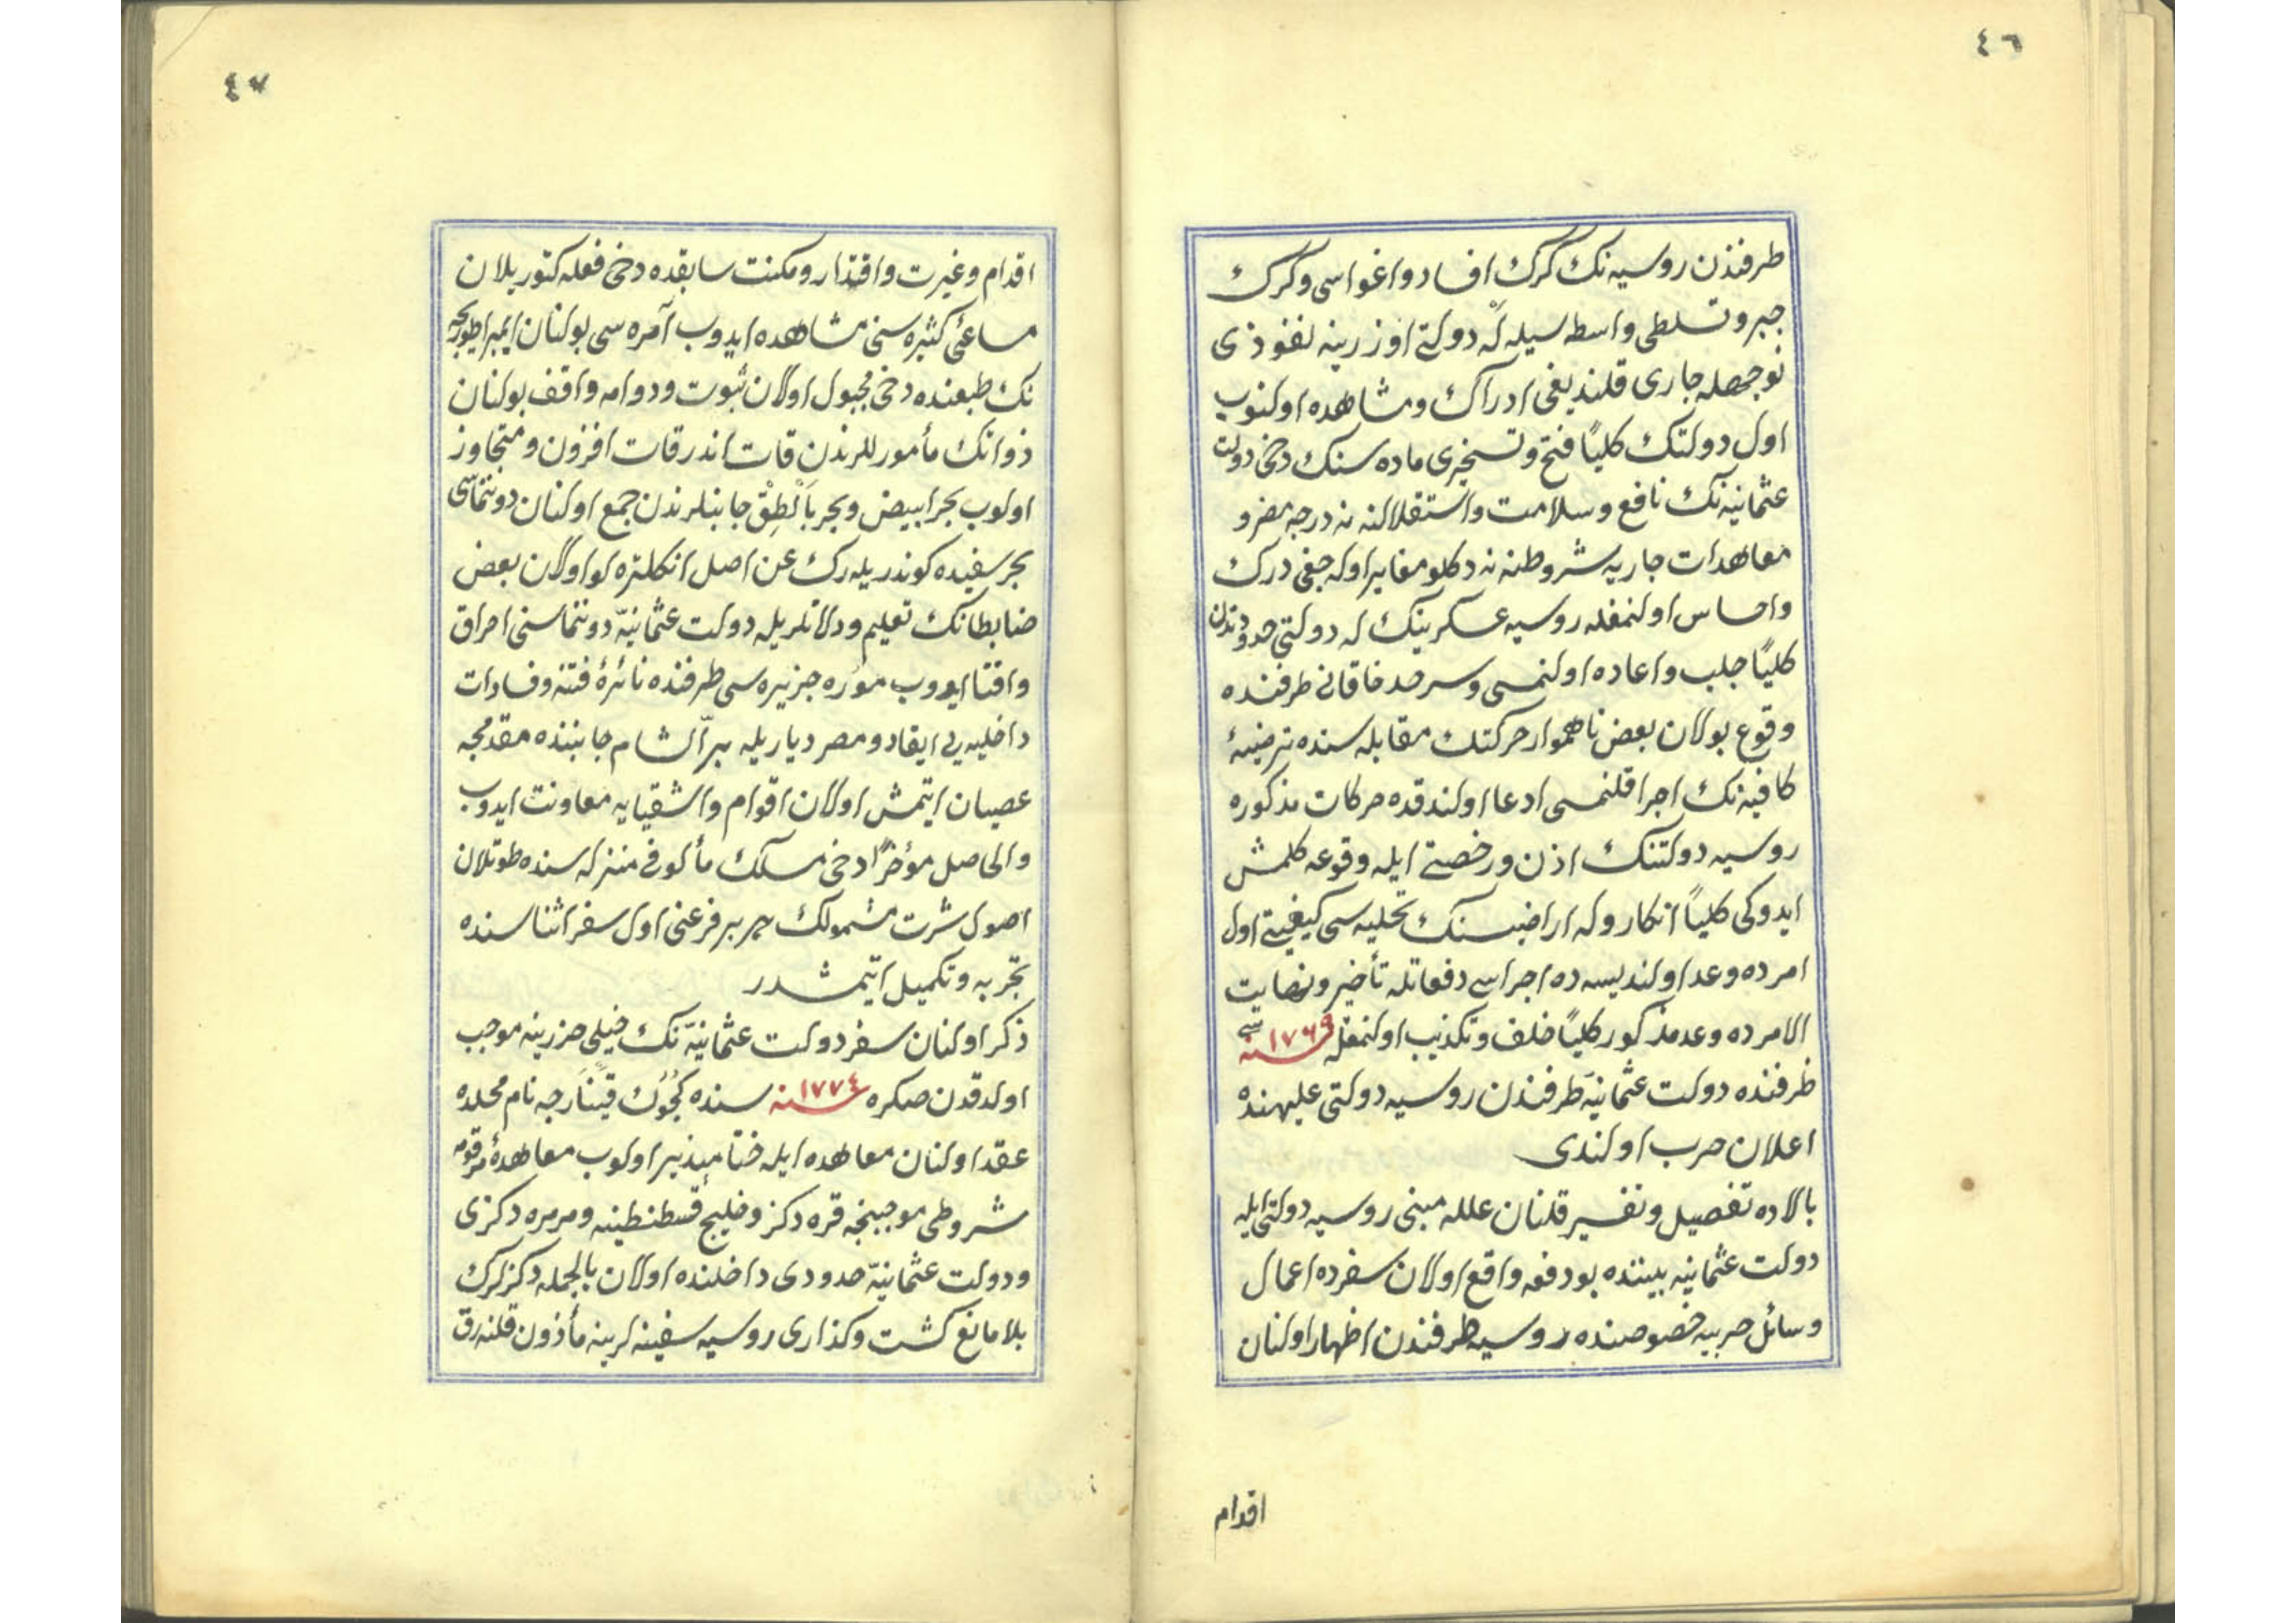 ٤٦
طرفندن روسیه نك كرك افساد و اغواسی و كرك
جبر و تسلطی واسطه سیله لَه دولتی اوزرینه نفوذی
نوجهله جاری قلندیغی ادراك و مشاهده اولنوب
اول دولتك كلیاً فتح و تسخیری ماده سنك دخی دولت
عثمانیه نك نافع و سلامت و استقلالنه نه درجه مضر و
معاهدات جاریه شروطنه نه دكلو مغایر اوله جغی درك
واحساس اولنمغله روسیه عسكرینك له دولتی حدودندن
كلیاً جلب و اعاده اولنمسی و سرحد خاقانی طرفنده
وقوع بولان بعض ناهموار حركتك مقابله سنده ترضیۀ
كافیه نك اجرا قلنمسی ادعا اولندقده حركات مذكوره
روسیه دولتنك اذن و رخصتی ایله وقوعه كلمش
ایدوكی كلیاً انكار و له اراضیسنك تخلیه سی كیفیتی اول
امرده وعد اولندیسه ده اجراسی دفعاتله تأخیر و نهایت
الامرده وعد مذكور كلیاً خلف و تكذیب اولنمغله سنه ١٧٦٩ سی
ظرفنده دولت عثمانیه طرفندن روسیه دولتی علیهنده
اعلان حرب اولندی
بالاده تفصیل و تفسیر قلنان عللـه مبنی روسیه دولتی ایله
دولت عثمانیه بیننده بو دفعه واقع اولان سفرده اعمال
وسائل حربیه خصوصنده روسیه طرفندن اظهار اولنان
اقدام
٤٧
اقدام و غیرت و اقتدار و مكنت سابقده دخی فعله كتوریلان
مساعئ كثیره سنی مشاهده ایدوب آمره سی بولنان ایمپراطوریچه
نك طبعنده دخی مجبول اولان ثبوت و دوامه واقف بولنان
ذواتك مأموللرندن قات اندر قات افزون و متجاوز
اولوب بحر ابیض و بحر بالطق جانبلرندن جمع اولنان دوننماسی
بحر سفیده كوندریله رك عن اصل انكلتره لو اولان بعض
ضابطانك تعلیم و دلالتلریله دولت عثمانیه دوننماسنی احراق
وافنا ایدوب موره جزیره سی طرفنده نائرۀ فتنه و فسادات
داخلیه یی ایقاد و مصر دیاریله بر الشام جانبنده مقدمجه
عصیان ایتمش اولان اقوام واشقیایه معاونت ایدوب
والحاصل مؤخراً دخی مسلك مألوفی منزله سنده طوتلان
اصول شرت مشمولك هر بر فرعنی اول سفر اثناسنده
تجربه و تكمیل ایتمشدر
ذكر اولنان سفر دولت عثمانیه نك خیلی ضررینه موجب
اولدقدن صكره سنه ١٧٧٤ سنده كجوك قینارجه نام محلده
عقد اولنان معاهده ایله ختامپذیر اولوب معاهدۀ مرقومه
شروطی موجبنجه قره دكز و خلیج قسطنطینیه و مرمره دكزی
و دولت عثمانیه حدودی داخلنده اولان بالجمله دكزلرك
بلا مانع كشت و كذاری روسیه سفینه لرینه مأذون قلنه رق